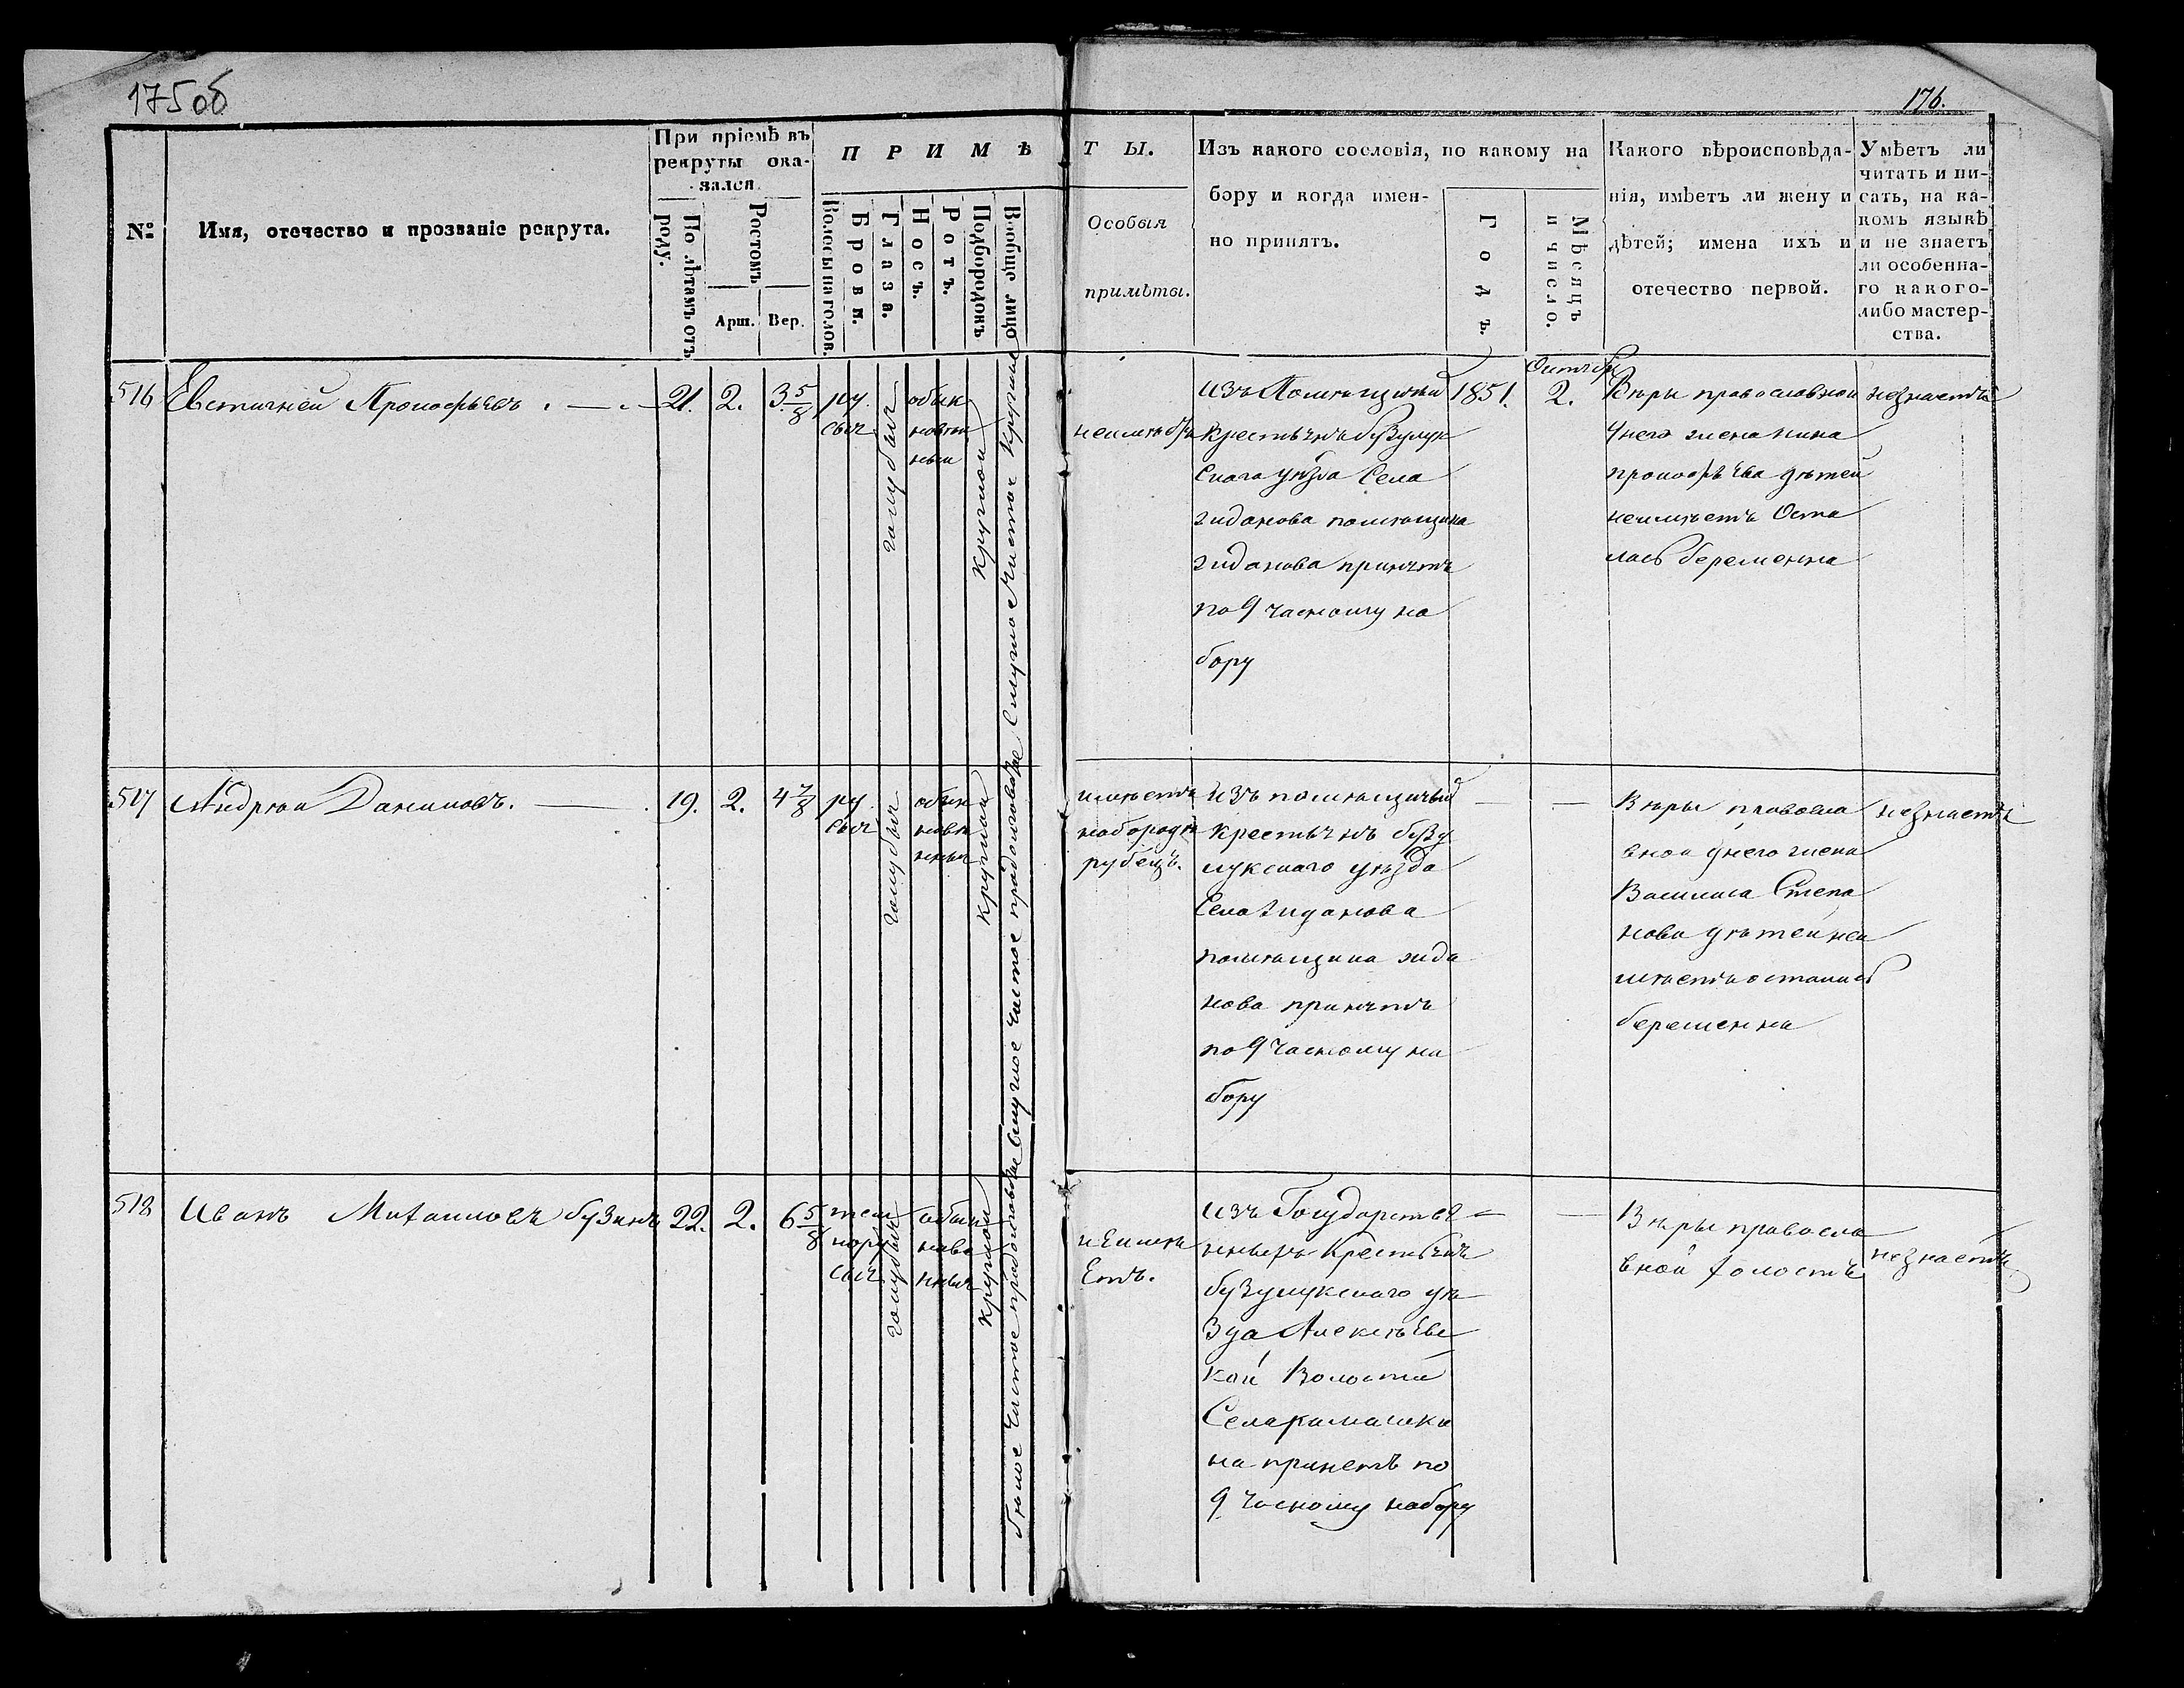 175 об
176.
При пріемѣ въ
рекруты ока-
зался.
П Р И М Ѣ
Т Ы.
№
Имя, отечество и прозваніе рекрута.
По лѣтамъ отъ
роду.
Ростомъ
Арш.
Вер.
Волосы на голов.
Брови.
Глаза.
Носъ.
Ротъ.
Подбородокъ
Вообще лицо
Особыя
примѣты.
Изъ какого сословія, по какому на
бору и когда имен-
но принятъ.
Годъ.
Мѣсяцъ
и число.
Какого вѣроисповѣда-
нія, имѣетъ ли жену и
дѣтей; имена ихъ и
отечество первой.
Умѣетъ ли
читать и пи-
сать, на ка-
комъ языкѣ
и не знаетъ
ли особенна-
го какого-
либо мастер-
ства.
516
Евстигней Прокофьевъ
21.
2.
3 5/8
ру
сыя
голубыя
обык
новен
ныи
круглой
Смугло Чистое круглое
изъ Помещичьи
крестьянъ бузулук
скаго уезда Села
жиданова помещика
жиданова принятъ
по 9 часному на
бору
1851.
Октябр
2.
Веры православной
Унего жена нина
прокофьева детей
неимеетъ Оста
лась беременна
незнаетъ
517
Андрюи Даниловъ.
19.
2.
4 7/8
ру
сыя
голубыя
обык
нове
нныя
круглои
Смуглое Чистое продолговатое
имеетъ
набороде
рубецъ.
изъ помещичьи
крестьянъ бузу
лукскаго уезда
Села Жиданова
помещика жида
нова принятъ
по 9 часному на
бору
Веры правосла
внои унего жена
Василиса Степа
нова детей неи
меетъ осталась
беременна
незнаетъ
518
Иванъ Михаиловъ бузинъ
22.
2.
6 5/8
тем
нору
сыя
голубыя
обык
нове
нныя
круглой
белое Чистое продолговатое
неиме
Етъ.
изъ Государстве
нныхъ Крестьянъ
бузулукскаго уе
зда Алексеевс
кой Волости
Села
на принетъ по
9 часному набору
Веры правосла
вной холостъ
незнаетъ